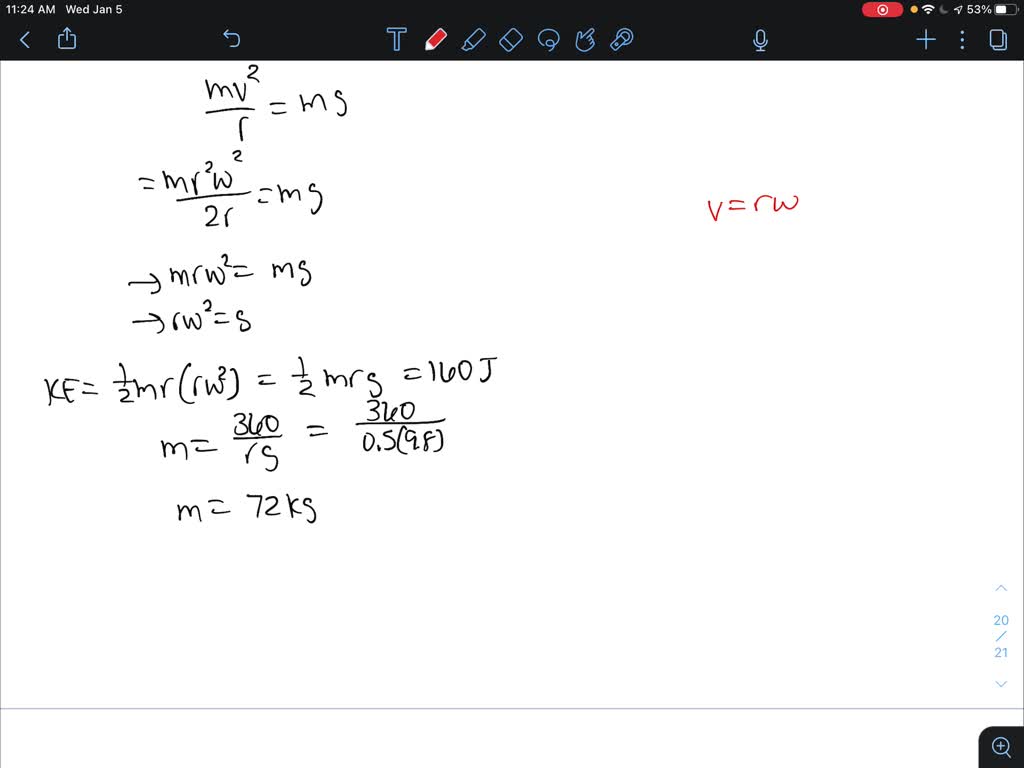 11:24 AM Wed Jan 5
53%
T
mv²/r = mg
= mr²w²/2r = mg
v = rw
→ mrw² = mg
→ rw² = g
KE = ½mr(rw²) = ½mrg = 160J
m = 360/rg = 360/0.5(9.8)
m = 72kg
20
/
21